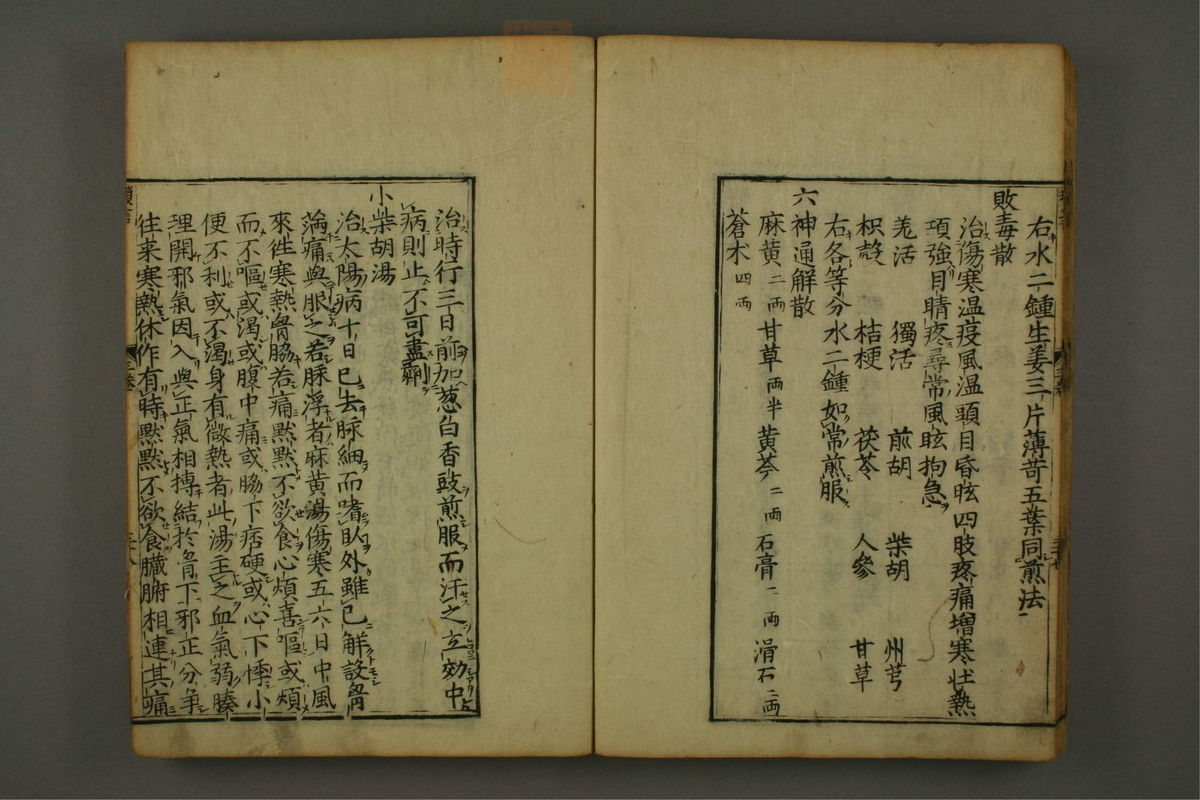 右水二鍾生姜三片薄苛五葉同煎法
敗毒散
治傷寒温疫風温頭目昏眩四肢疼痛增寒壮熱
項強目睛疼尋常風眩拘急
羌活 獨活 前胡 柴胡 州芎
枳殻 桔梗 茯苓 人參 甘草
右各等分水二鍾如常煎服
六神通解散
麻黄二兩 甘草兩半 黄芩二兩 石膏二兩 滑石二兩
蒼木四兩
治時行三日前加葱白香豉煎服而汗之立効中
病則止不可盡劑
小柴胡湯
治太陽病十日已去脉細而嗜臥外雖已解設胷
滿痛與服之若脉浮者麻黄湯傷寒五六日中風
來徃寒熱胷脇若痛黙黙不欲食心煩喜嘔或煩
而不嘔或渇或腹中痛或脇下痞硬或心下悸小
便不利或不渇身有微熱者此湯主之血氣弱腠
理開邪氣因入與正氣相摶結於胷下邪正分争
往来寒熱休作有時黙黙不欲食臓腑相連其痛